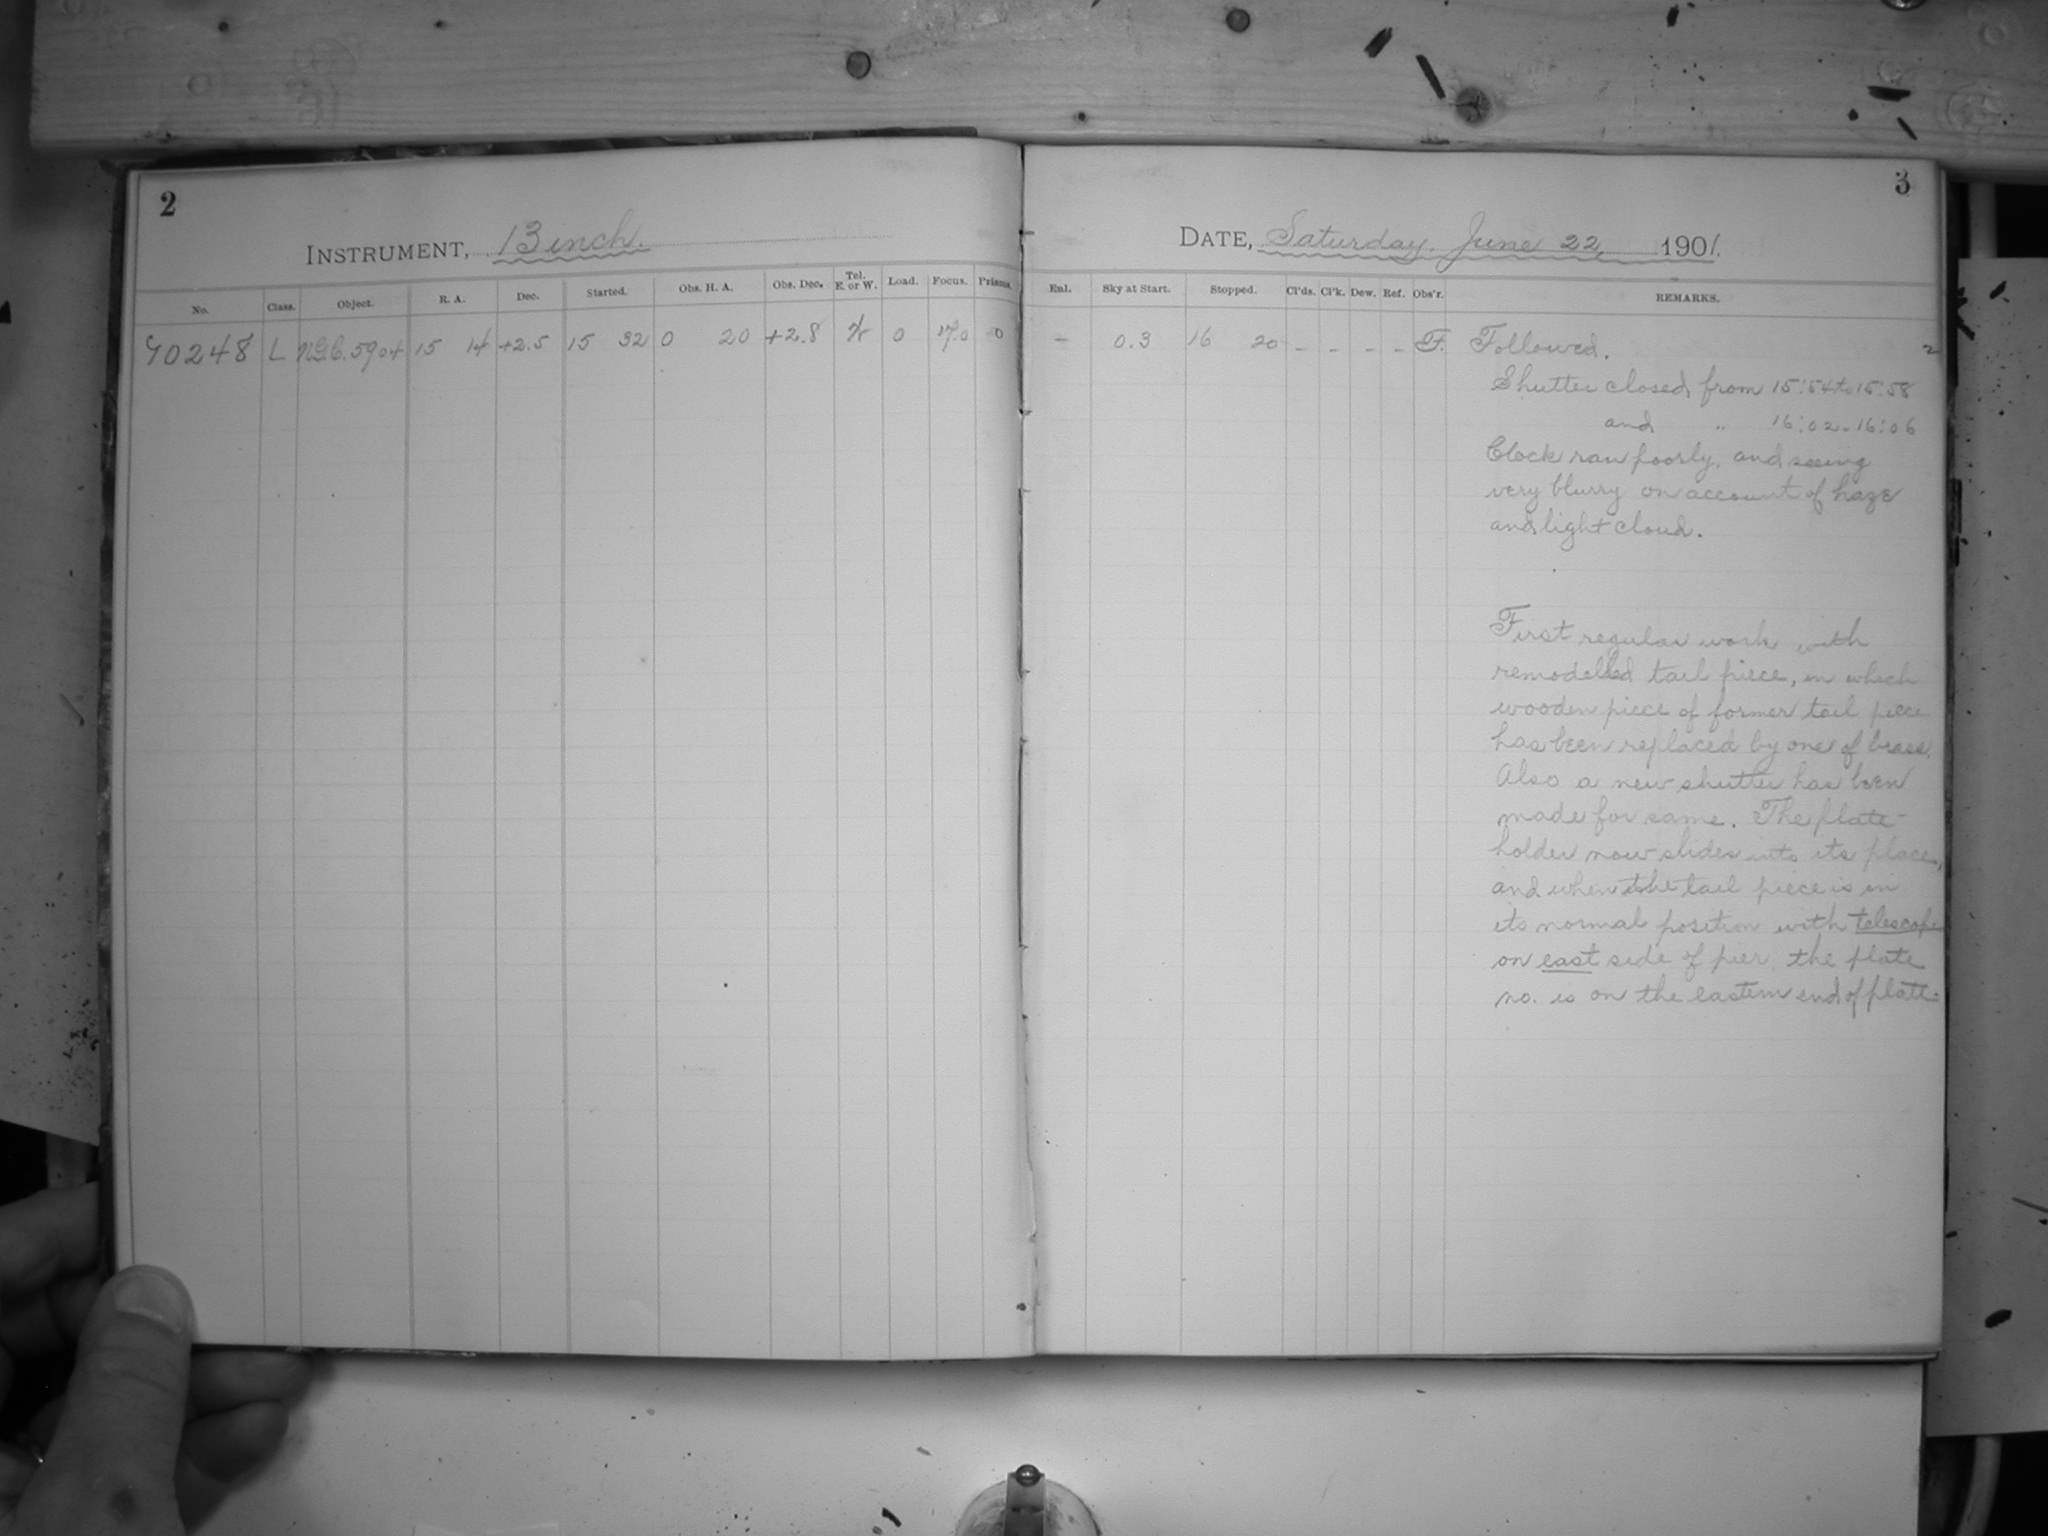 2
INSTRUMENT, 13 inch.
No. Class. Object. R. A. Dec. Started. Obs. H. A. Obs. Dec. Tel. E. or W. Load. Focus. Prisms.
Y0248 L N.G.C. 5904 15 14 +2.5 15 32 0 20 +2.8 W 0 17.0 0
3
DATE, Saturday, June 22, 1901.
Enl. Sky at Start. Stopped. Cl'ds. Cl'k. Dew. Ref. Obs'r. REMARKS.
- 0.3 16 20 - - - - F. Followed. 2
Shutter closed from 15:54 to 15:58
and " 16:02 - 16:06
Clock ran poorly, and seeing
very blurry on account of haze
and light cloud.
First regular work with
remodelled tail piece, in which
wooden piece of former tail piece
has been replaced by one of brass.
Also a new shutter has been
made for same. The plate-
holder now slides into its place,
and when the tail piece is in
its normal position with telescope
on east side of pier, the plate
no. is on the eastern end of plate.